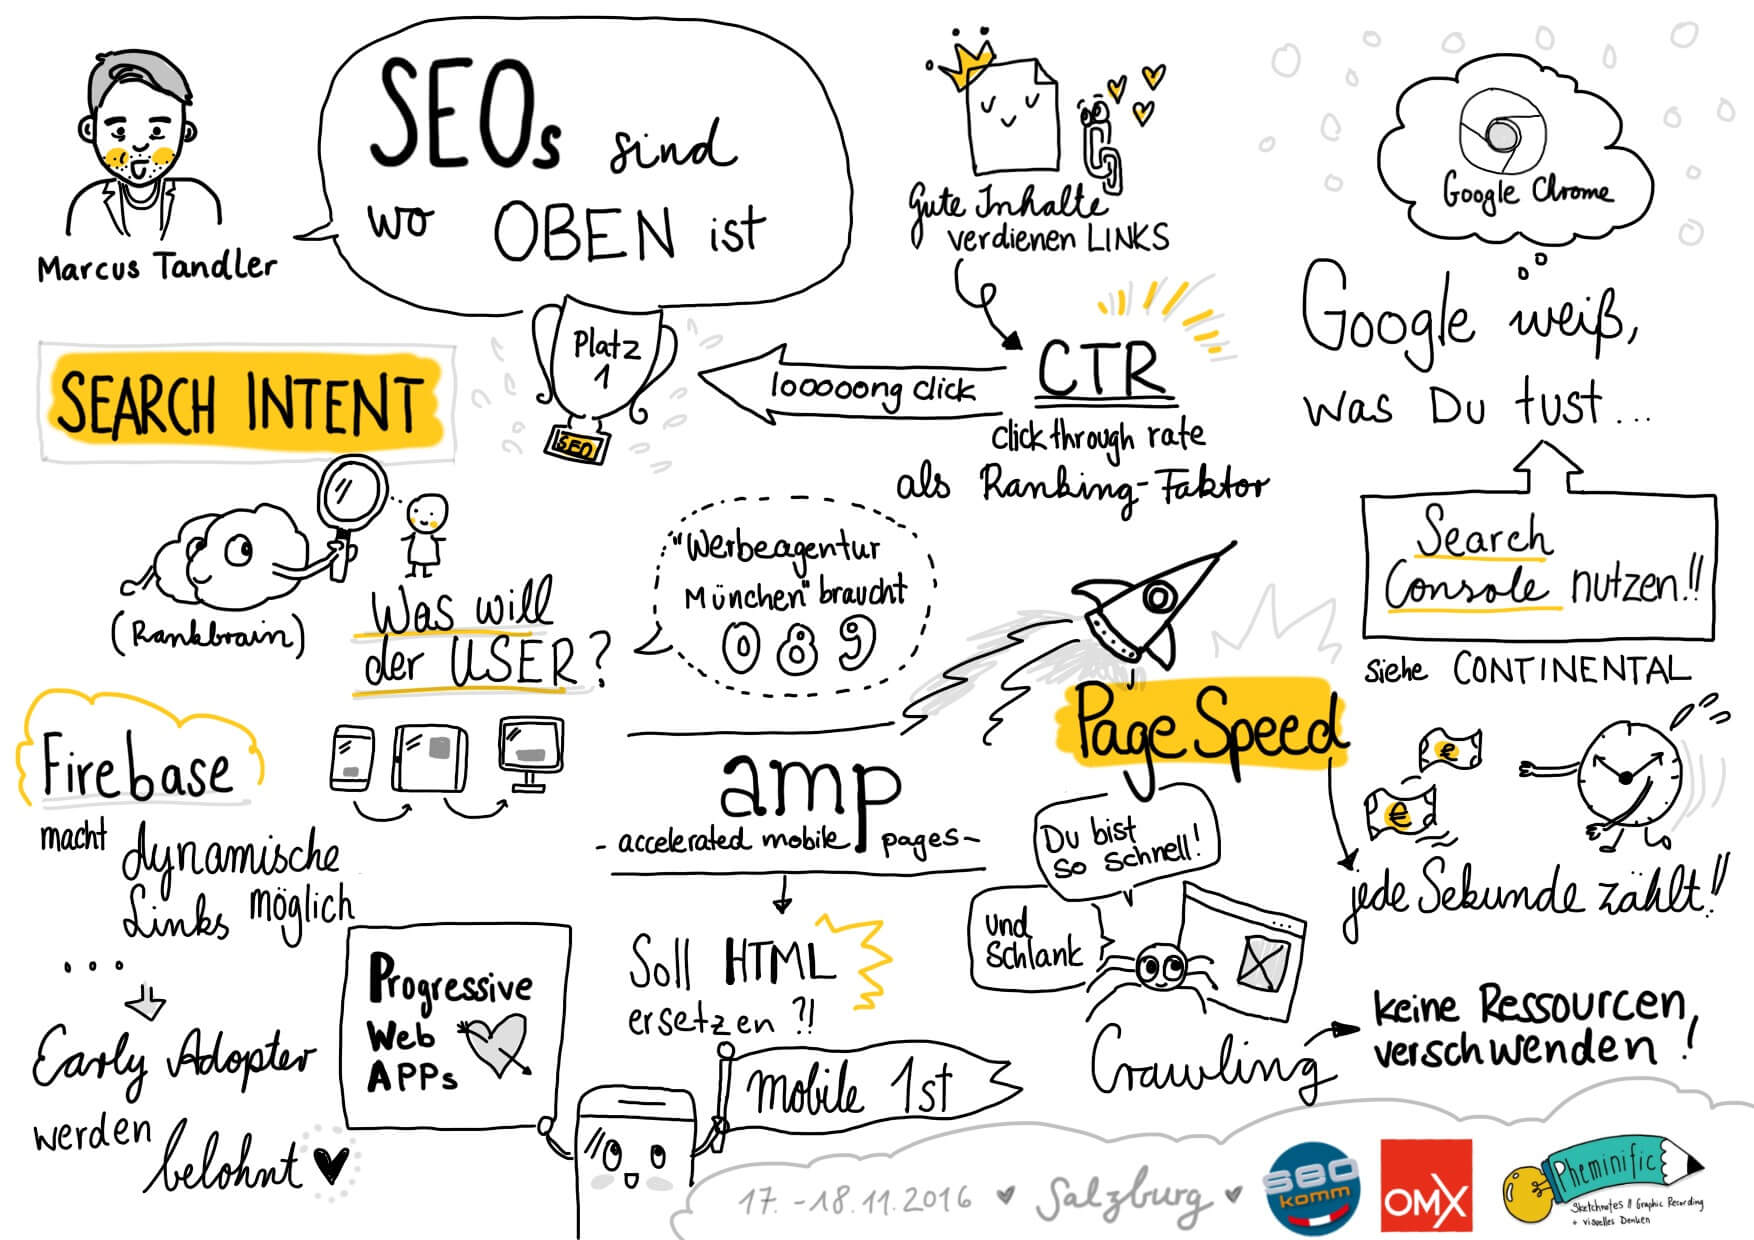 SEOs sind
wo OBEN ist
Marcus Tandler
Platz
1
SEO
Gute Inhalte
verdienen LINKS
CTR
click through rate
als Ranking-Faktor
looooong click
Google Chrome
Google weiß,
was Du tust...
Search
Console nutzen!!
siehe CONTINENTAL
SEARCH INTENT
(Rankbrain)
Was will
der USER?
"Werbeagentur
München" braucht
089
Firebase
macht dynamische
Links möglich
...
Early Adopter
werden
belohnt
Progressive
Web
APPs
amp
- accelerated mobile pages -
Soll HTML
ersetzen ?!
mobile 1st
Page Speed
€
€
jede Sekunde zählt!!
Du bist
so schnell!
und
schlank
Crawling
keine Ressourcen
verschwenden!
17.-18.11.2016 Salzburg
SEO
komm
OMX
Pheminific
Sketchnotes // Graphic Recording
+ visuelles Denken